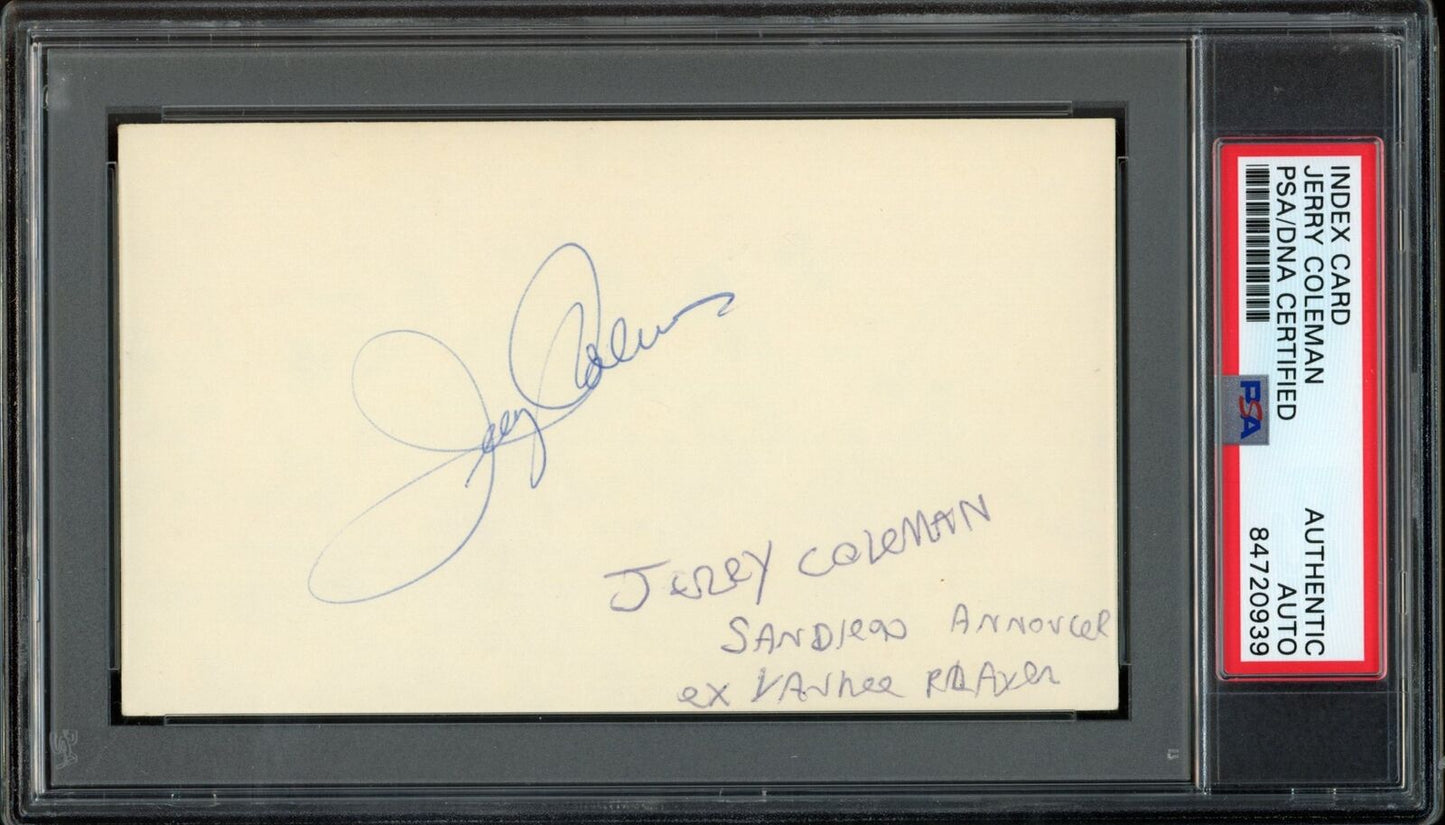 Jerry Coleman
JERRY COLEMAN
SANDIEGO ANNOUCER
ex YANkee PLAYer
INDEX CARD
JERRY COLEMAN
PSA/DNA CERTIFIED
PSA
AUTHENTIC
AUTO
84720939